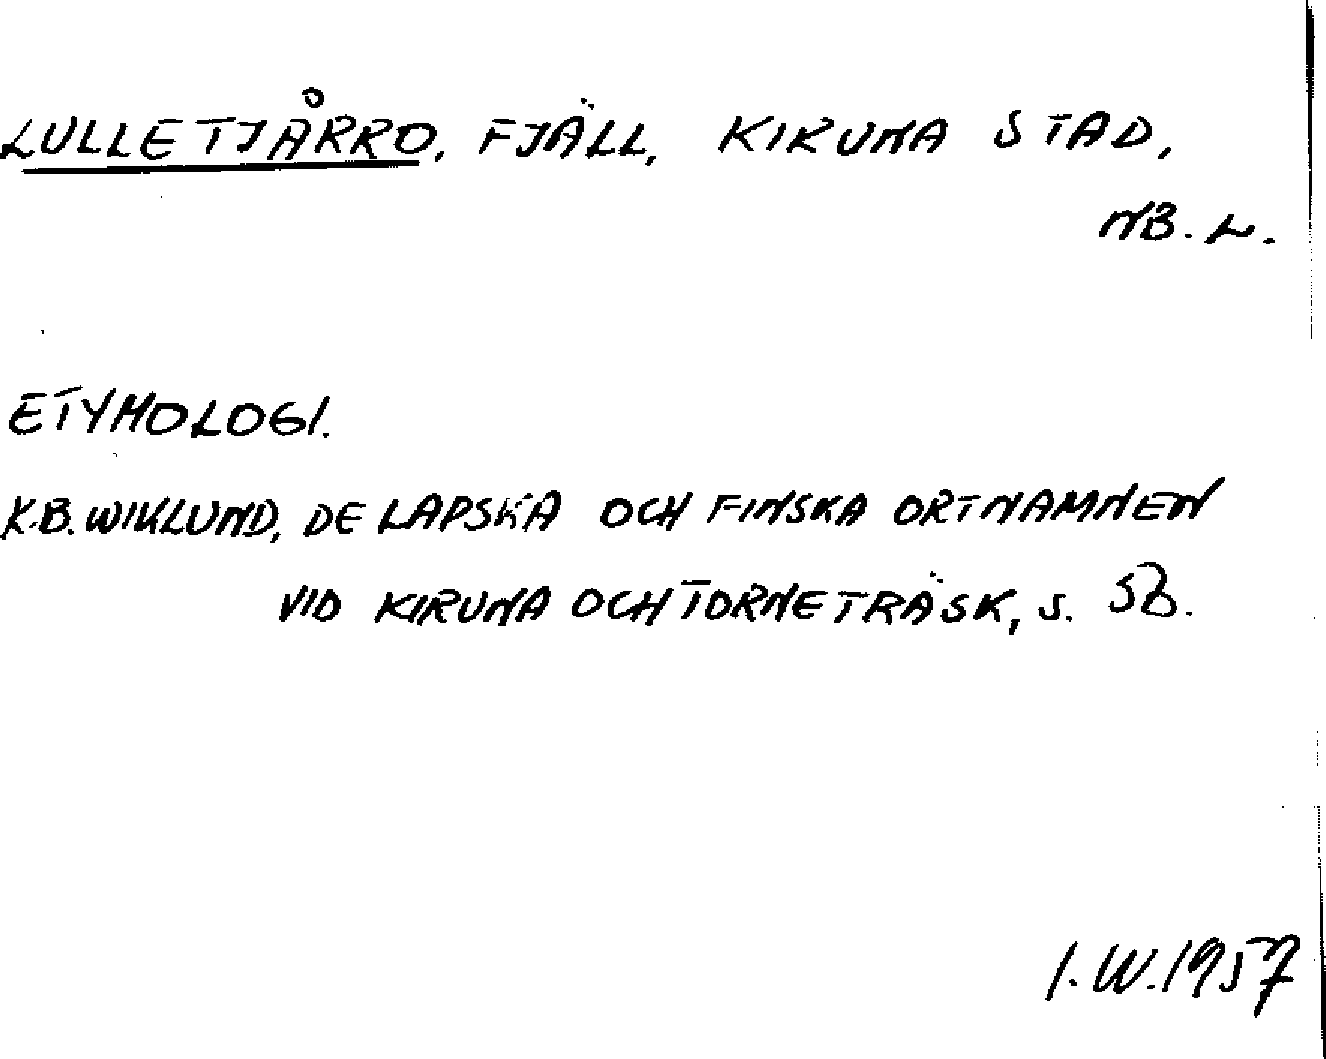 LULLETJÅRRO, FJÄLL, KIRUNA STAD,
NB. L.
ETYMOLOGI.
K.B. WIKLUND, DE LAPSKA OCH FINSKA ORTNAMNEN
VID KIRUNA OCH TORNETRÄSK, S.
I.W. 1957